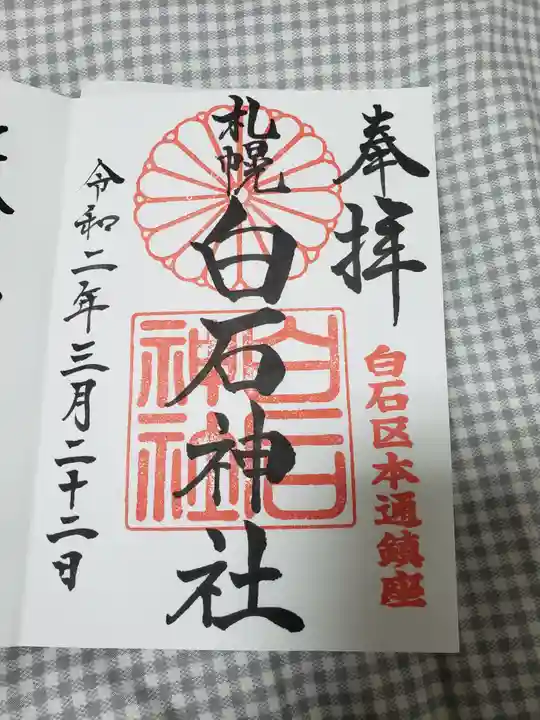 奉拝
白石区本通鎮座
札幌
白石神社
白石神社
令和二年三月二十二日